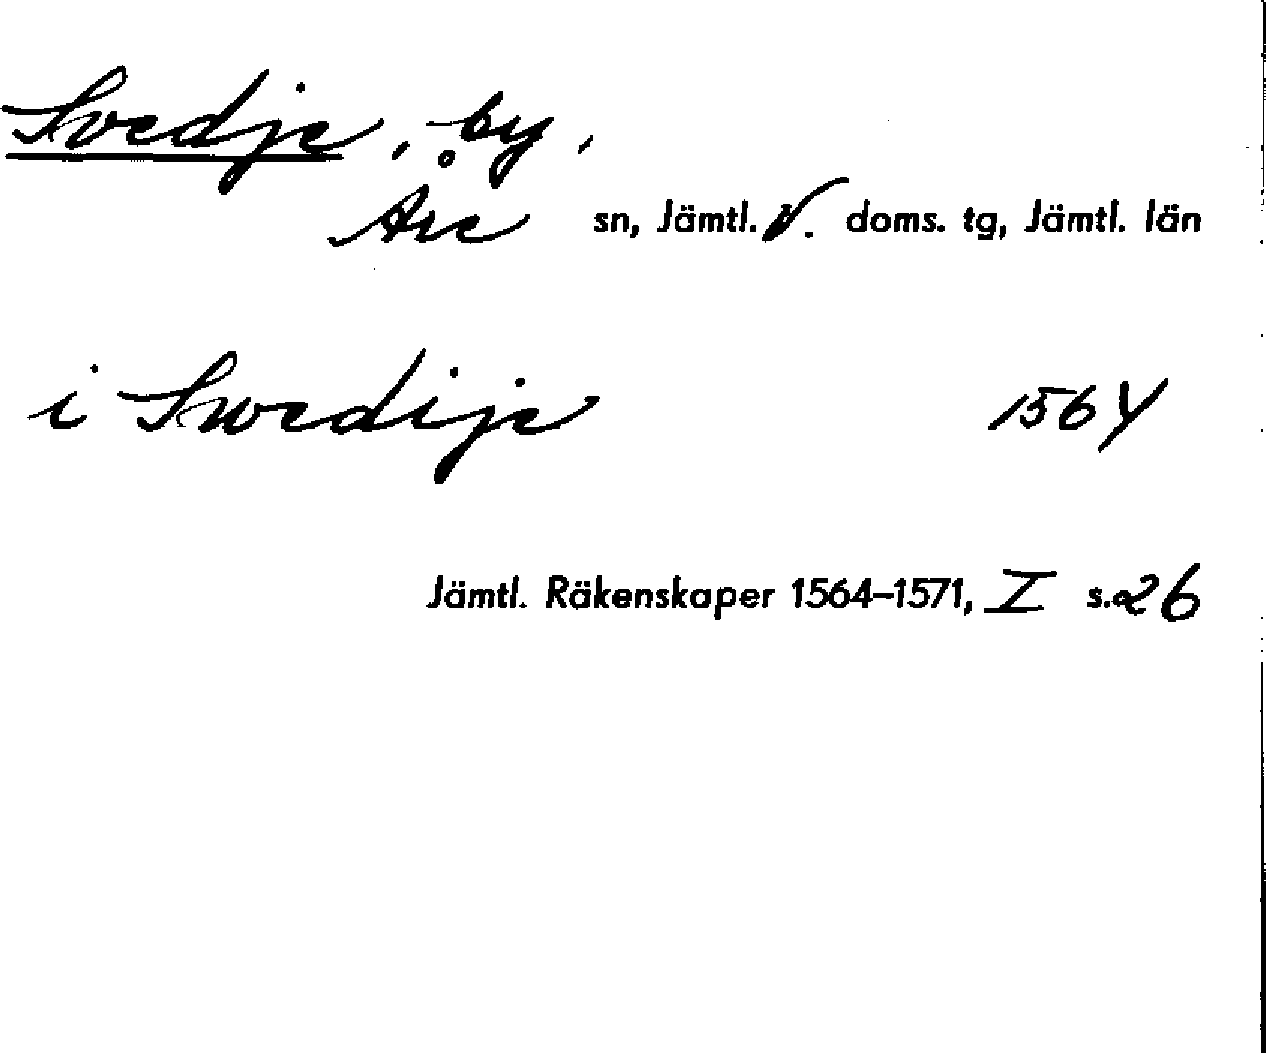 Svedje, by,
Åre sn, Jämtl. V. doms. tg, Jämtl. län
i Swedije 1564
Jämtl. Räkenskaper 1564–1571, I s. 26